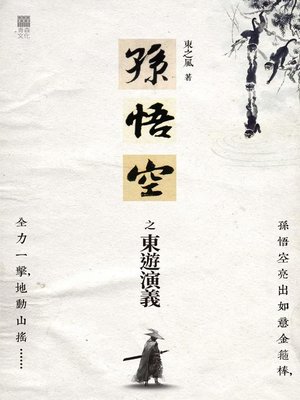 青森
文化
孫悟空
東之風 著
之東遊演義
孫悟空亮出如意金箍棒，
全力一擊，地動山搖……